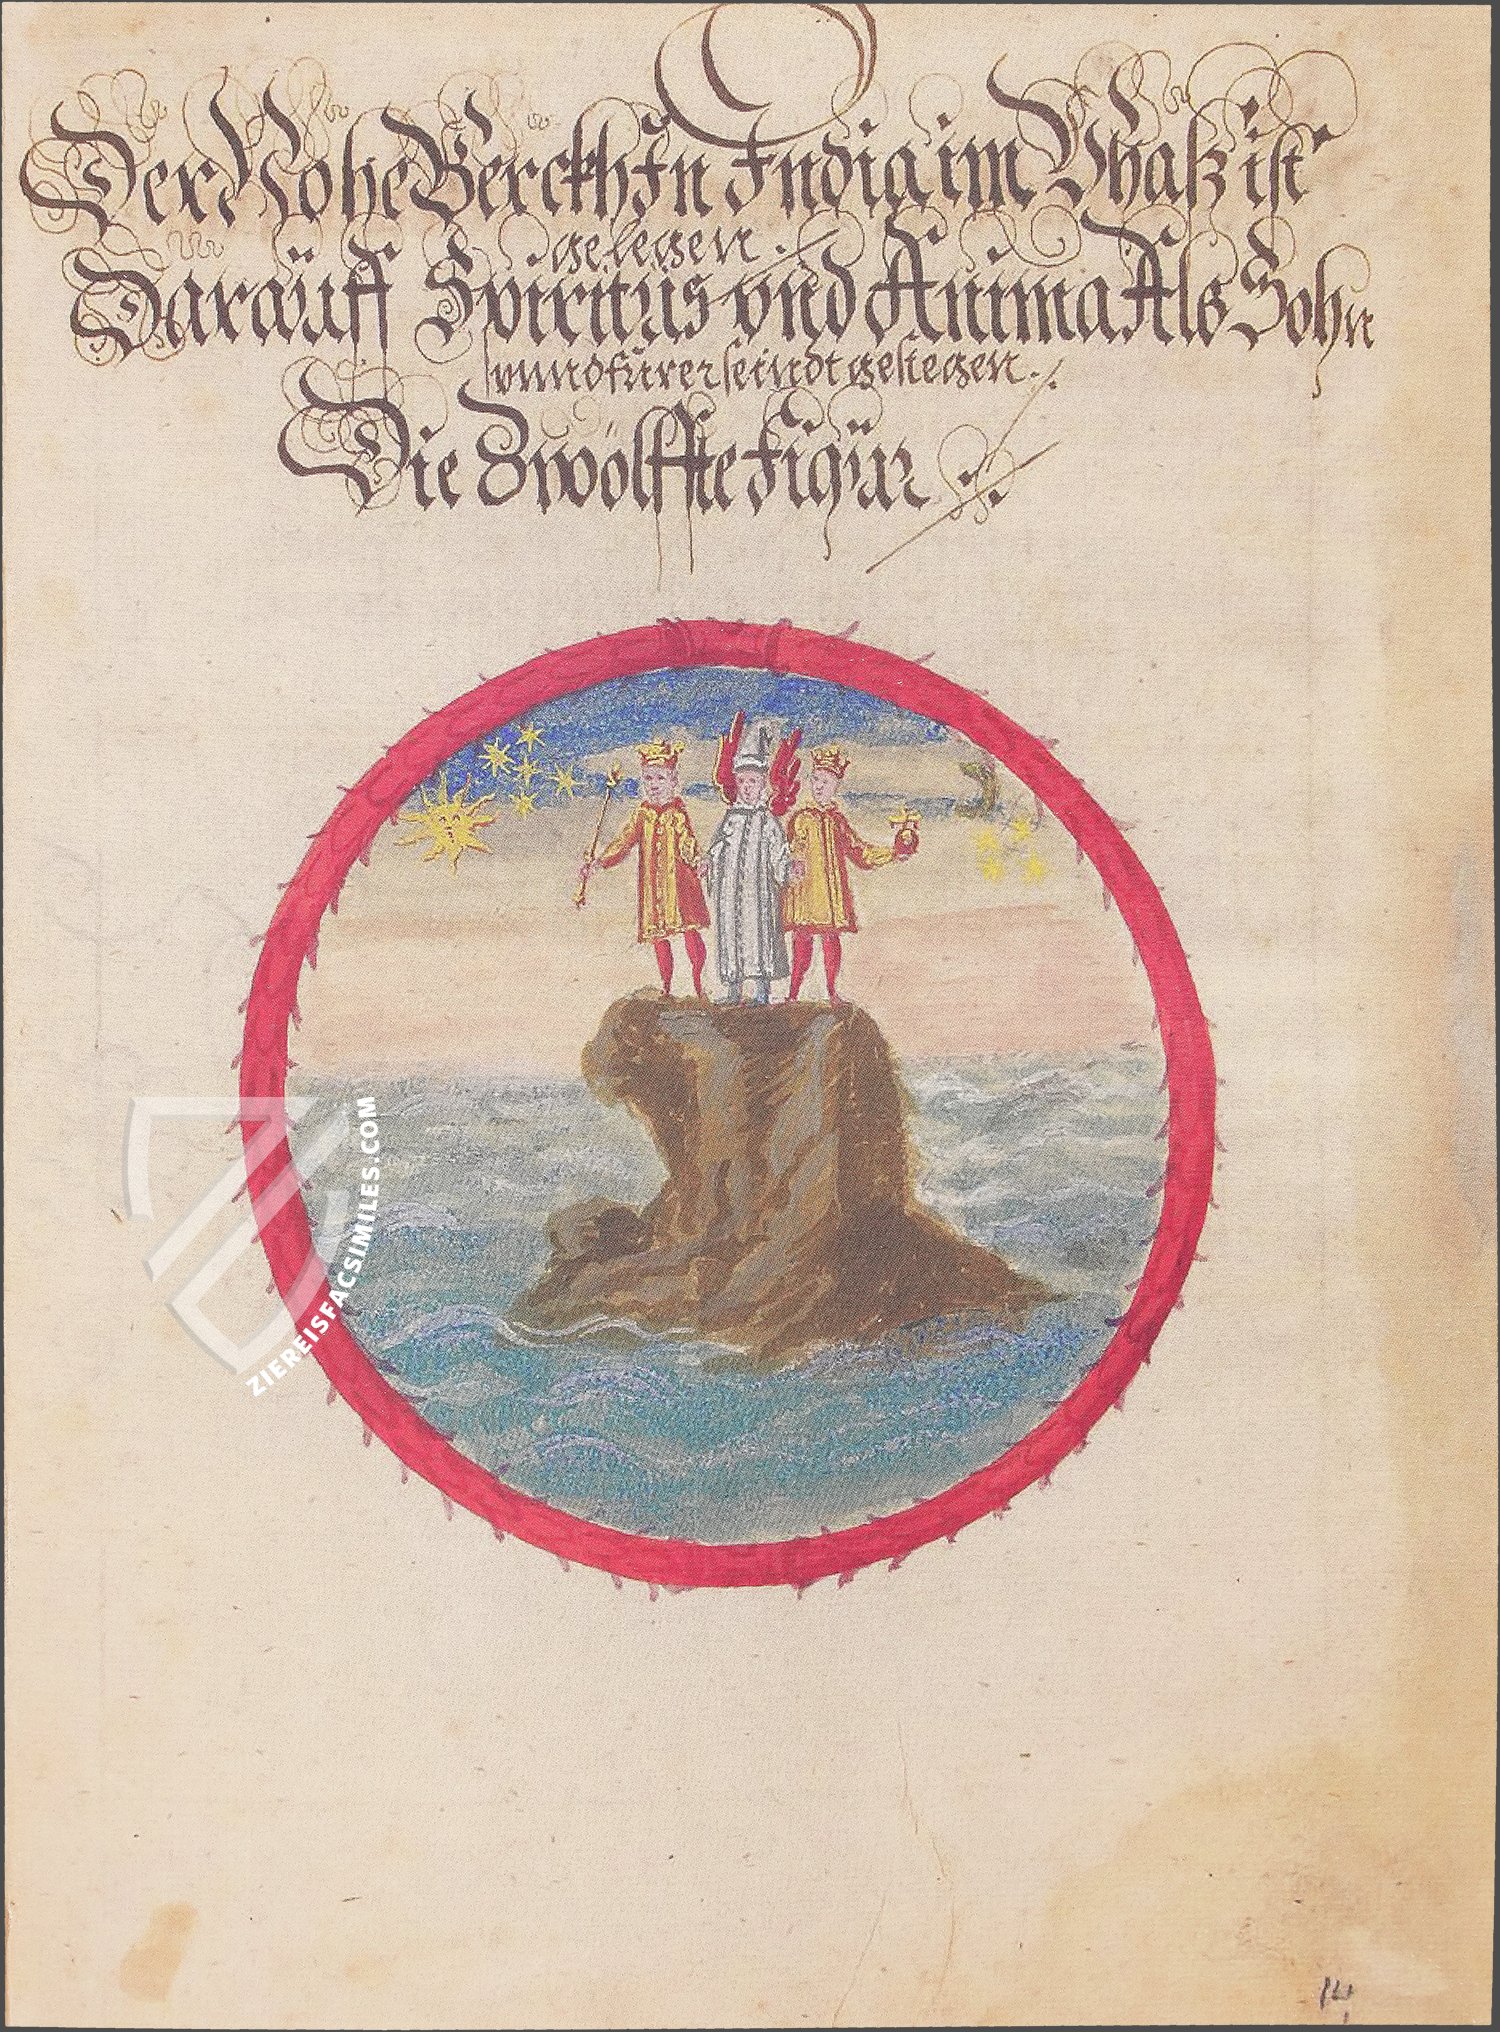 Der Hohe Berckh In India im Vhaß ist
gelegen ./.
Darauff Spiritus vnd Anima Als Sohn
vnnd fürer seindt gestegen ./.
Die Zwölffte Figür ./.
ZIEREISFACSIMILES.COM
14